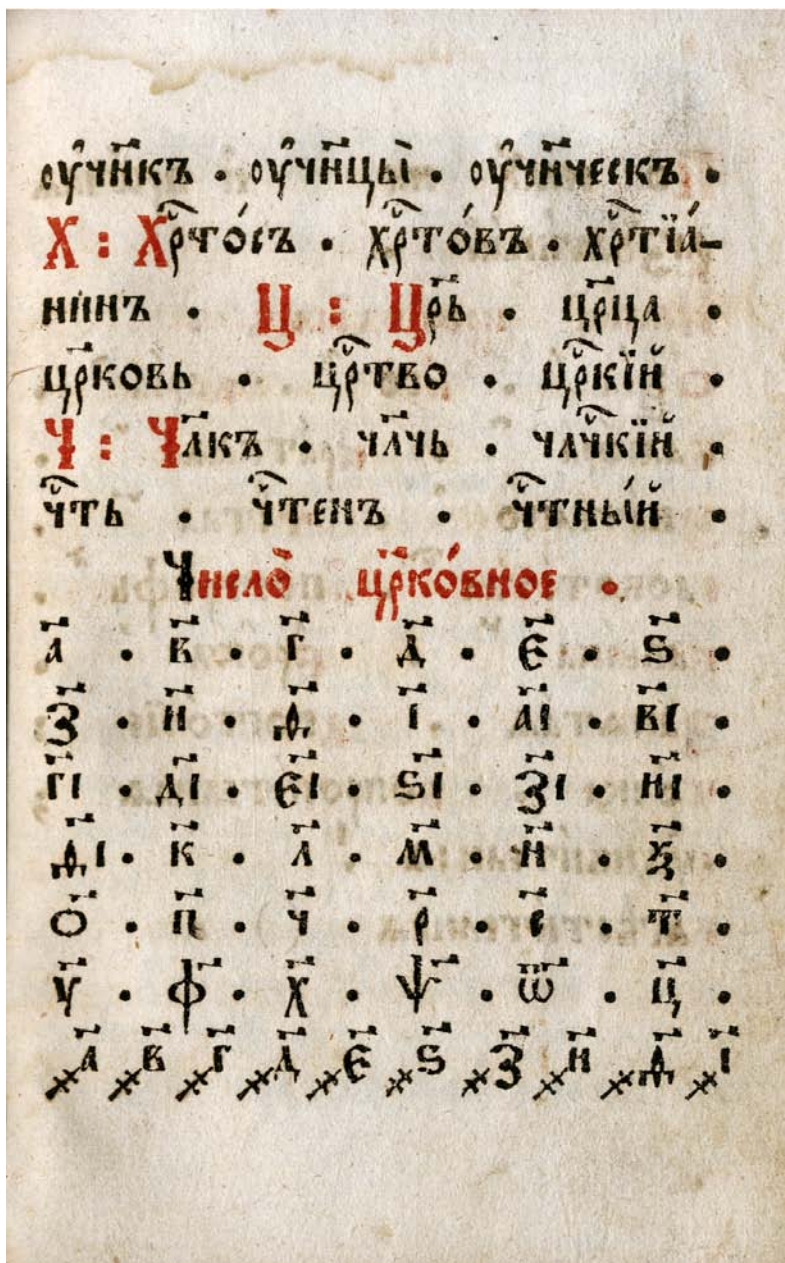 ᲂу҆чн҃къ . ᲂу҆чн҃цы̀ . ᲂу҆чн҃ческъ .
Х : Хрⷭ҇то́съ . хрⷭ҇то́въ . хрⷭ҇тїа́-
нинъ . Ц : Цр҃ь . цр҃ца .
цр҃ковь . црⷭ҇тво . црⷭ҇кїй .
Ч : Чл҃къ . чл҃чь . члч҃кїй .
чⷭ҇ть . чⷭ҇тенъ . чⷭ҇тны́й .
Число̀ цр҃ко́вное .
а҃ . в҃ . г҃ . д҃ . є҃ . ѕ҃ .
з҃ . и҃ . ѳ҃ . і҃ . а҃і . в҃і .
г҃і . д҃і . є҃і . ѕ҃і . з҃і . и҃і .
ѳ҃і . к҃ . л҃ . м҃ . н҃ . ѯ҃ .
ѻ҃ . п҃ . ч҃ . р҃ . с҃ . т҃ .
у҃ . ф҃ . х҃ . ѱ҃ . ѿ҃ . ц҃ .
҂а҃ ҂в҃ ҂г҃ ҂д҃ ҂є҃ ҂ѕ҃ ҂з҃ ҂и҃ ҂ѳ҃ ҂і҃